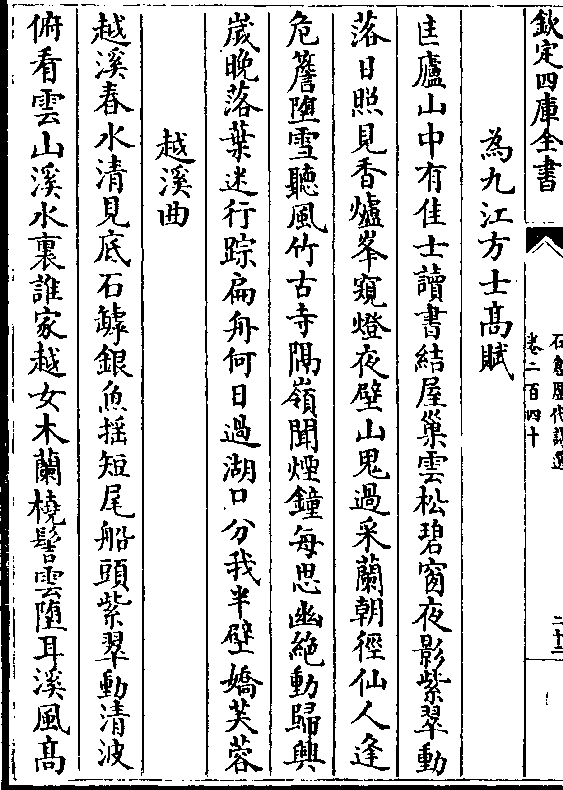 欽定四庫全書
石倉歴代詩選
卷二百四十
二十二
為九江方士髙賦
匡廬山中有佳士讀書結屋巢雲松碧窗夜影紫翠動
落日照見香爐峯窺燈夜壁山鬼過采蘭朝徑仙人逢
危簷墮雪聽風竹古寺隔嶺聞煙鐘每思幽絶動歸興
嵗晚落葉迷行踪扁舟何日過湖口分我半壁嬌芙蓉
越溪曲
越溪春水清見底石罅銀魚揺短尾船頭紫翠動清波
俯看雲山溪水裏誰家越女木蘭橈髻雲墮耳溪風髙